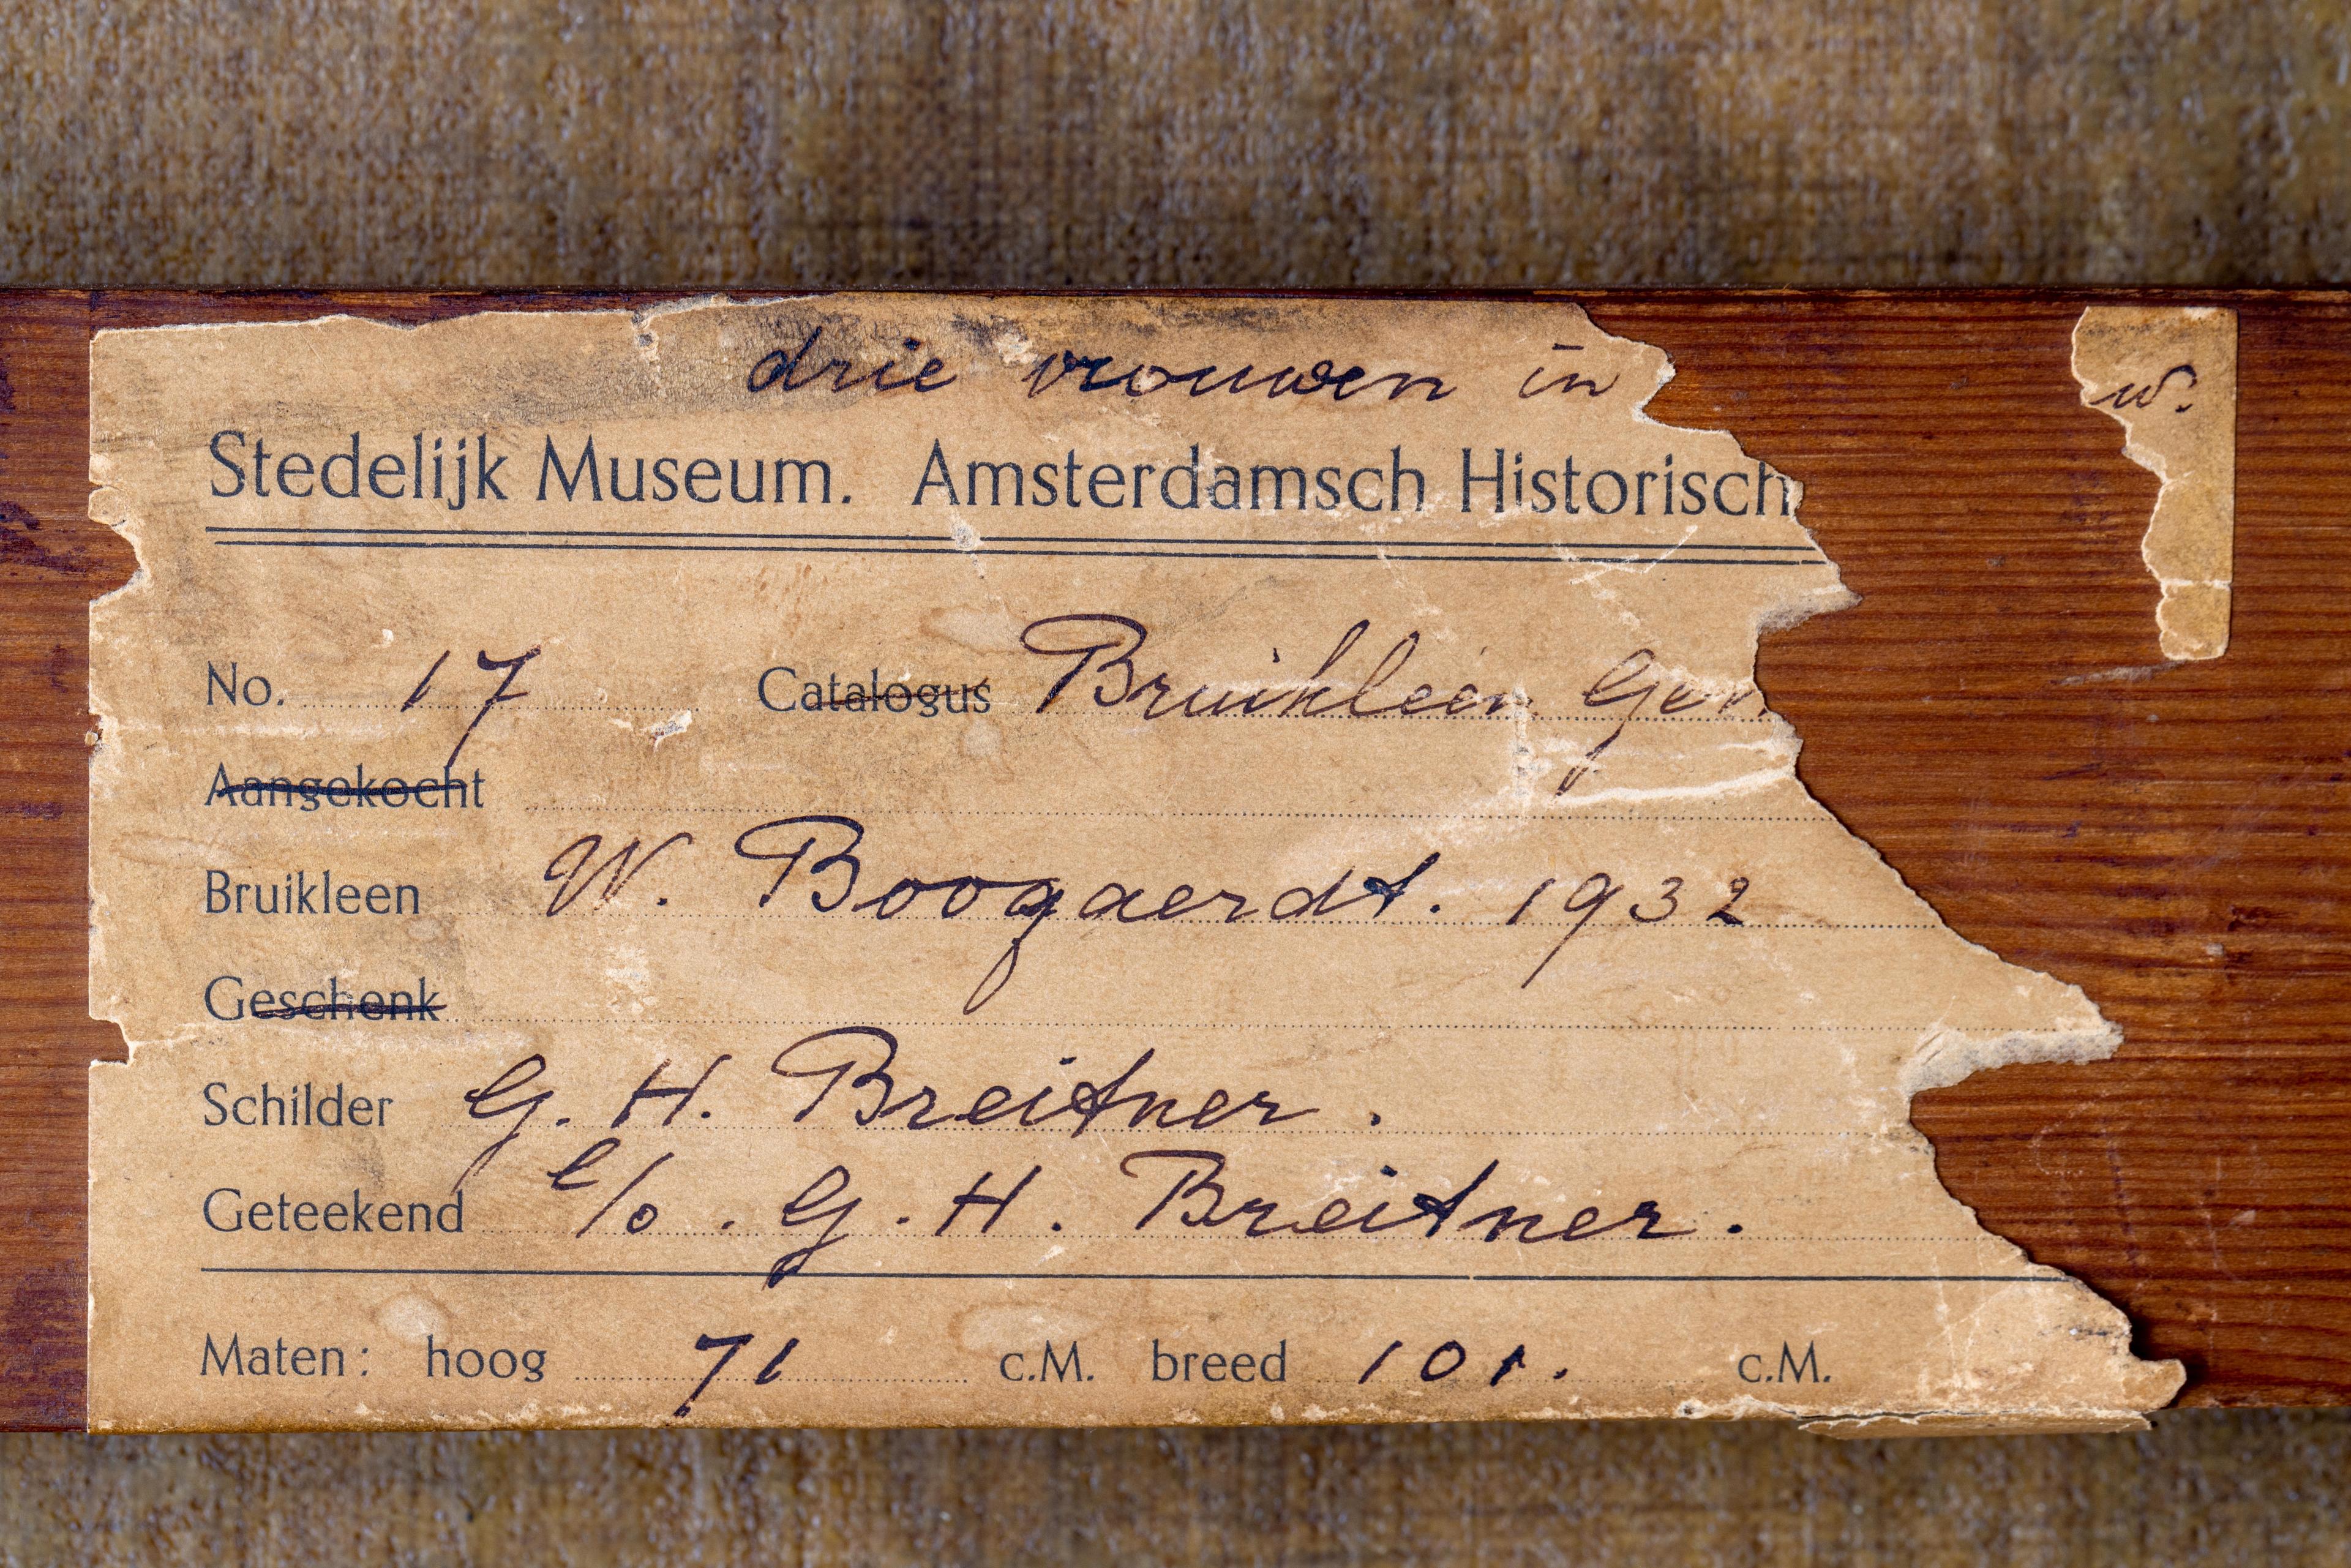 drie vrouwen in w.
Stedelijk Museum. Amsterdamsch Historisch
No. 17 Catalogus Bruikleen
Aangekocht
Bruikleen W. Boogaerdt. 1932
Geschenk
Schilder G. H. Breitner.
Geteekend l/o. G. H. Breitner.
Maten: hoog 71 c.M. breed 101. c.M.